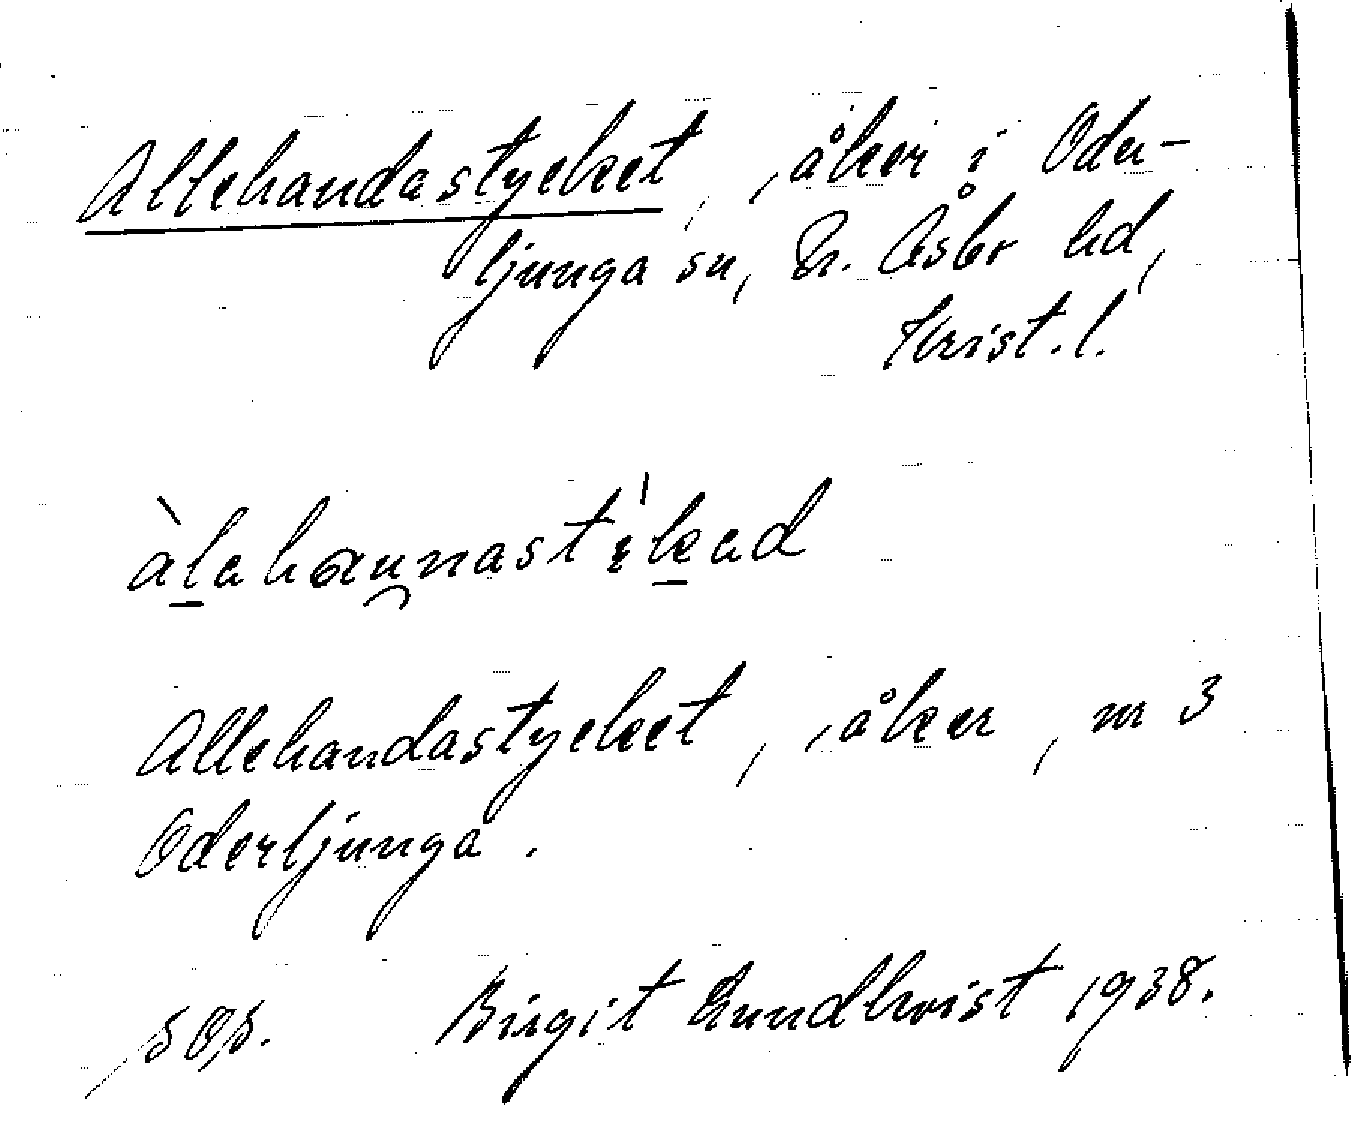 Allehandastycket, åker i Ode-
ljunga sn, N. Åsbo hd,
Krist. l.
àlahannastìkad
Allehandastycket, åker, nr 3
Oderljunga.
Birgit Lundkvist 1938.